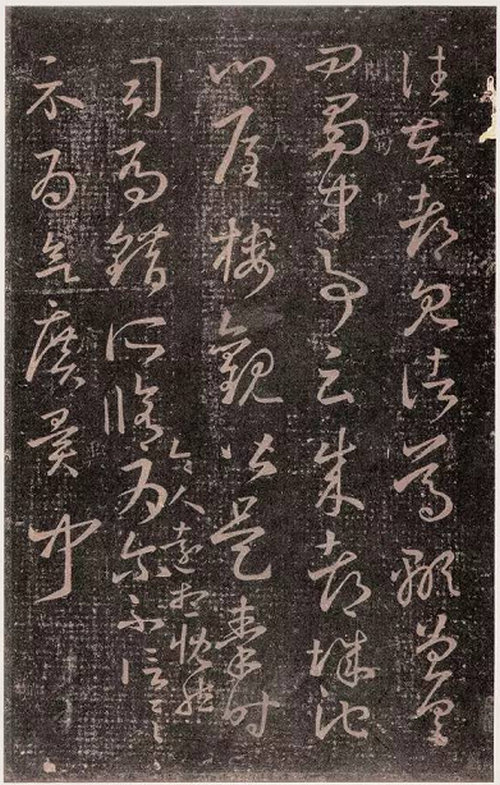 往在都見諸葛顒曾具
問蜀中
問蜀中事云成都城池
門屋樓觀皆是秦時
司馬錯所脩
令人遠想慨然
為尔不信一一
示為欲廣異聞